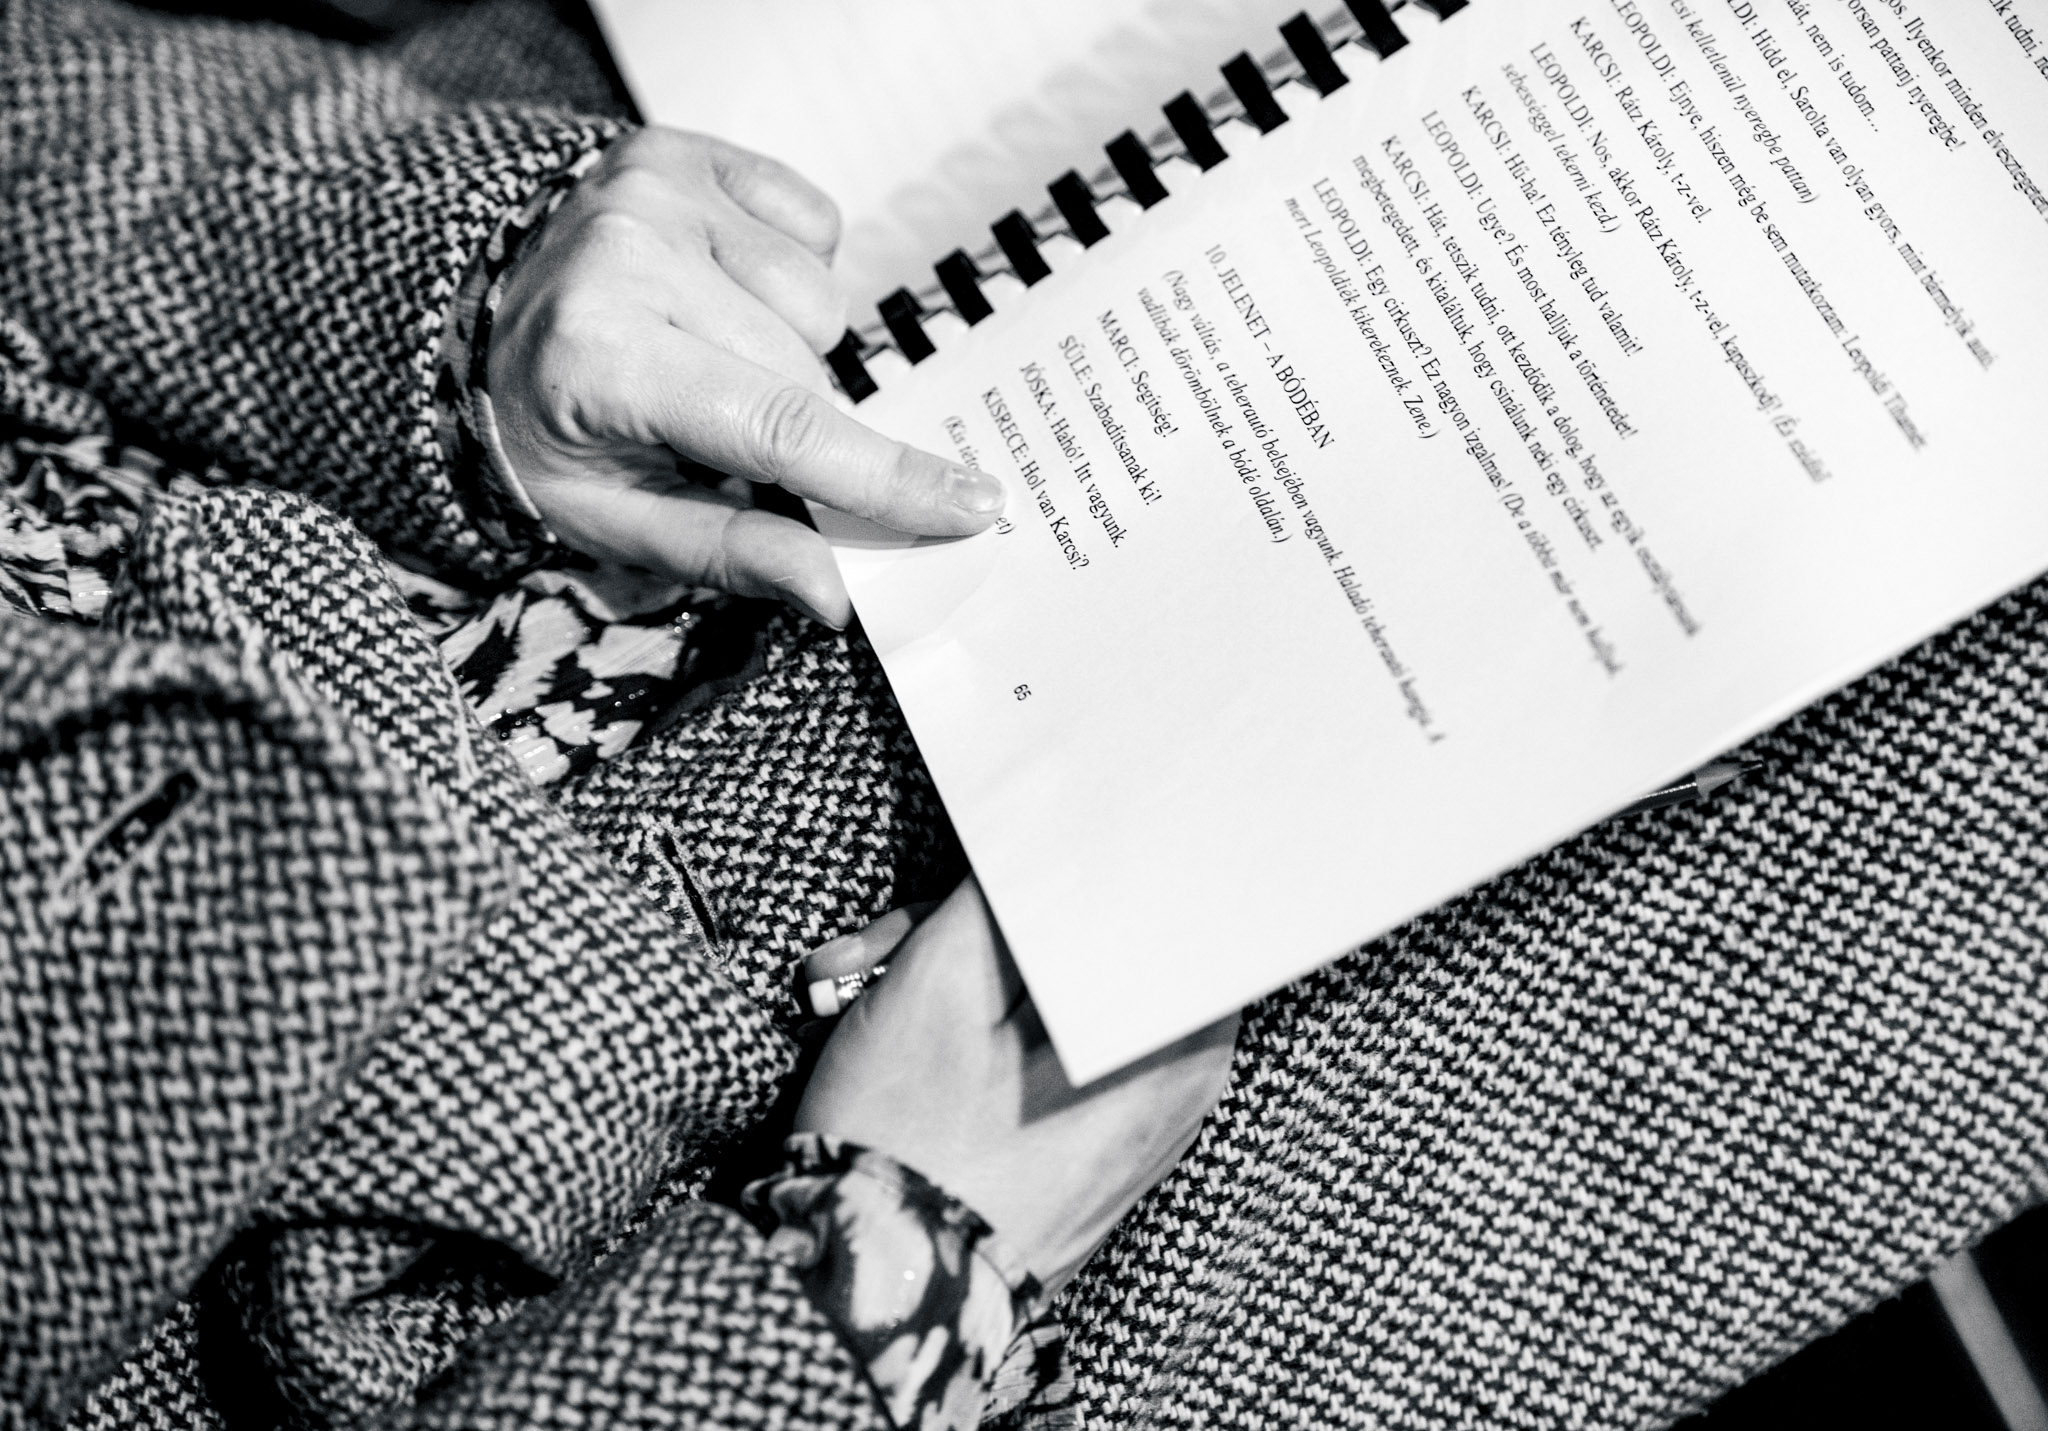 ik tudni, ne
os. Ilyenkor minden elvesztegetett
yorsan pattanj nyeregbe!
aát, nem is tudom...
LDI: Hidd el, Sarolta van olyan gyors, mint bármelyik autó.
csi kelletlenül nyeregbe pattan)
LEOPOLDI: Ejnye, hiszen még be sem mutatkoztam. Leopoldi Tihamér.
KARCSI: Rátz Károly, t-z-vel.
LEOPOLDI: Nos, akkor Rátz Károly, t-z-vel, kapaszkodj! (És családi
sebességgel tekerni kezd.)
KARCSI: Hű-ha! Ez tényleg tud valamit!
LEOPOLDI: Ugye? És most halljuk a történetedet!
KARCSI: Hát, tetszik tudni, ott kezdődik a dolog, hogy az egyik osztálytársunk
megbetegedett, és kitaláltuk, hogy csinálunk neki egy cirkuszt.
LEOPOLDI: Egy cirkuszt? Ez nagyon izgalmas! (De a többit már nem halljuk,
mert Leopoldiék kikerekeznek. Zene.)
10. JELENET – A BÓDÉBAN
(Nagy váltás, a teherautó belsejében vagyunk. Haladó teherautó hangja. A
vadlibák dörömbölnek a bódé oldalán.)
MARCI: Segítség!
SÜLE: Szabadítsanak ki!
JÓSKA: Hahó! Itt vagyunk.
KISRECE: Hol van Karcsi?
(Kis et)
65